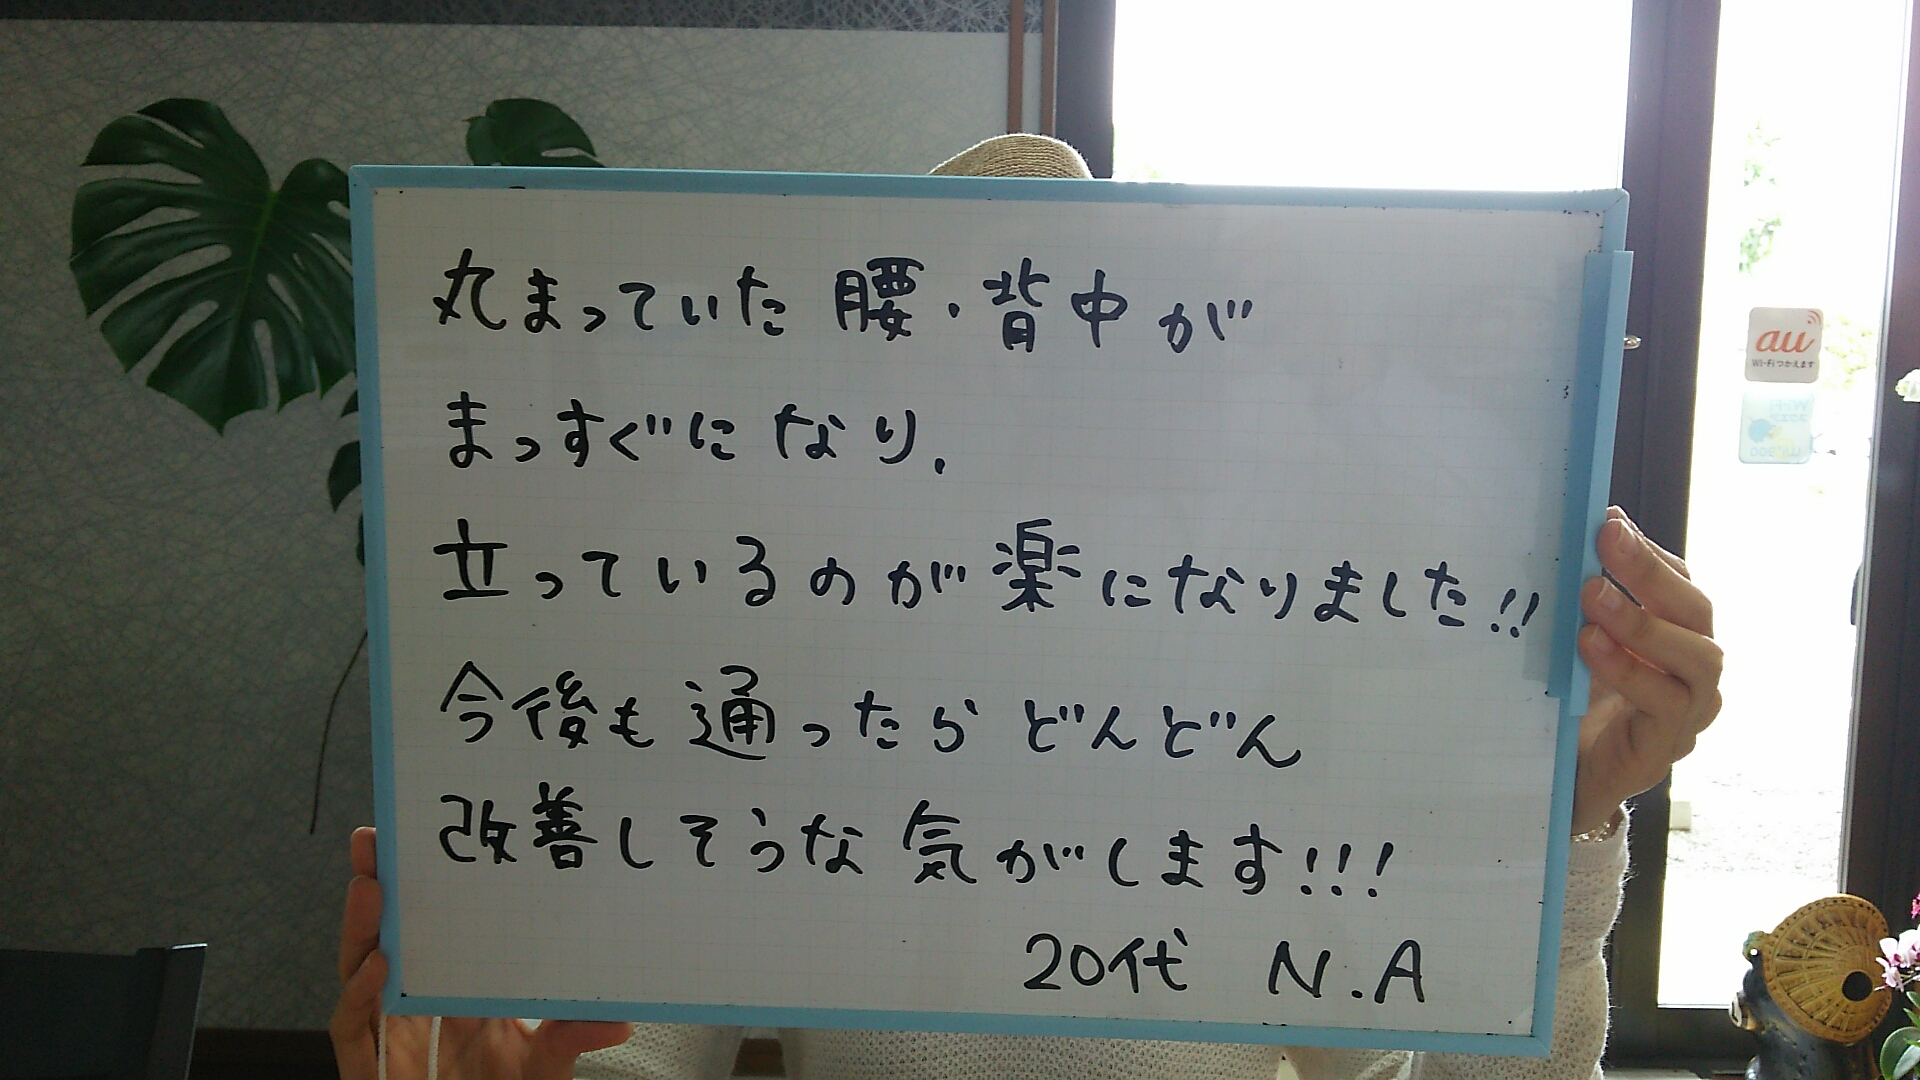 丸まっていた腰・背中が
まっすぐになり、
立っているのが楽になりました!!
今後も通ったらどんどん
改善しそうな気がします!!!
20代 N.A
au
Wi-Fiつかえます